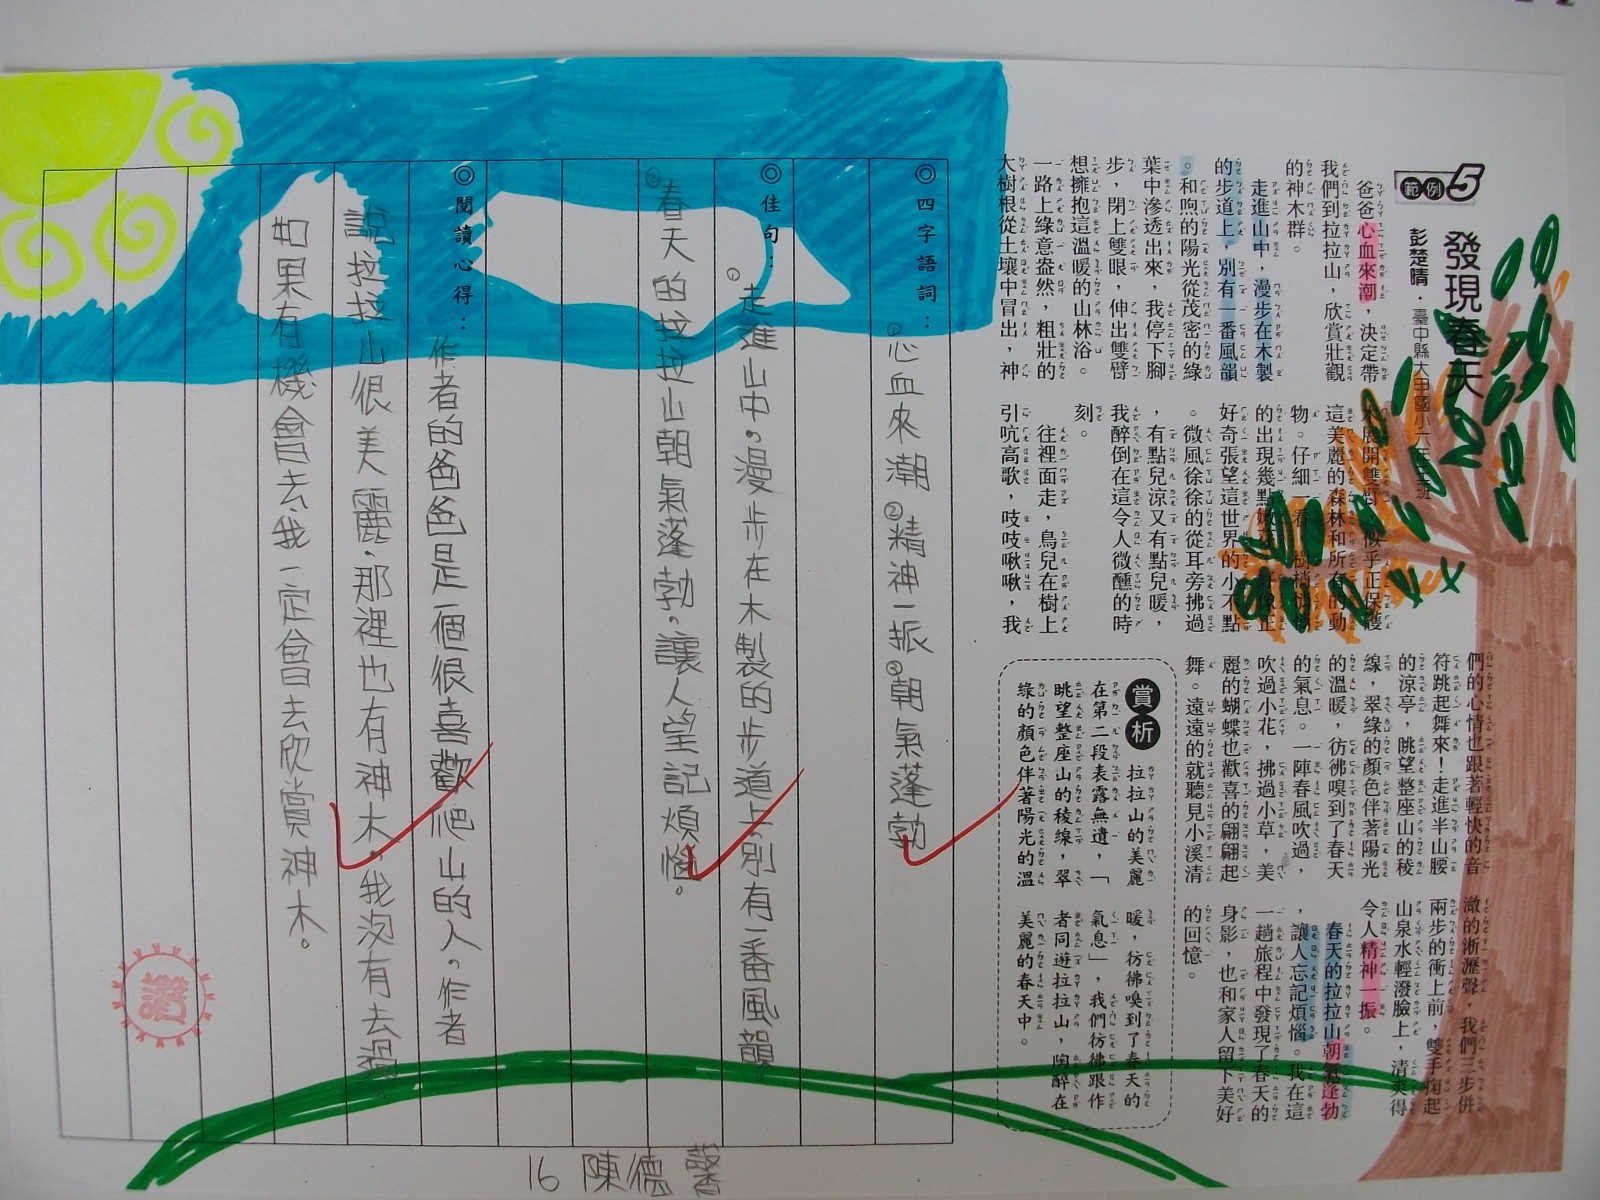 範例5
發現春天
彭楚晴‧臺中縣大甲國小六年三班
爸爸心血來潮，決定帶
我們到拉拉山，欣賞壯觀
的神木群。
走進山中，漫步在木製
的步道上，別有一番風韻
。和煦的陽光從茂密的綠
葉中滲透出來，我停下腳
步，閉上雙眼，伸出雙臂
想擁抱這溫暖的山林浴。
一路上綠意盎然，粗壯的
大樹根從土壤中冒出，神
木展開雙臂，似乎正保護
這美麗的森林和所有的動
物。仔細一看，樹梢
的出現幾點嫩
好奇張望這世界的小不點
。微風徐徐的從耳旁拂過
，有點兒涼又有點兒暖，
我醉倒在這令人微醺的時
刻。
往裡面走，鳥兒在樹上
引吭高歌，吱吱啾啾，我
們的心情也跟著輕快的音
符跳起舞來！走進半山腰
的涼亭，眺望整座山的稜
線，翠綠的顏色伴著陽光
的溫暖，彷彿嗅到了春天
的氣息。一陣春風吹過，
吹過小花，拂過小草，美
麗的蝴蝶也歡喜的翩翩起
舞。遠遠的就聽見小溪清
澈的淅瀝聲，我們三步併
兩步的衝上前，雙手掬起
山泉水輕潑臉上，清爽得
令人精神一振。
春天的拉拉山朝氣蓬勃
，讓人忘記煩惱。我在這
一趟旅程中發現了春天的
身影，也和家人留下美好
的回憶。
賞析
拉拉山的美麗
在第二段表露無遺，「
眺望整座山的稜線，翠
綠的顏色伴著陽光的溫
暖，彷彿嗅到了春天的
氣息」，我們彷彿跟作
者同遊拉拉山，陶醉在
美麗的春天中。
◎四字語詞：①心血來潮 ②精神一振 ③朝氣蓬勃
◎佳句：①走進山中。漫步在木製的步道上，別有一番風韻。
②春天的拉拉山朝氣蓬勃。讓人望記煩惱。
◎閱讀心得：作者的爸爸是一個很喜歡爬山的人。作者
說拉拉山很美麗，那裡也有神木，我沒有去過
如果有機會去，我一定會去欣賞神木。
16 陳德馨